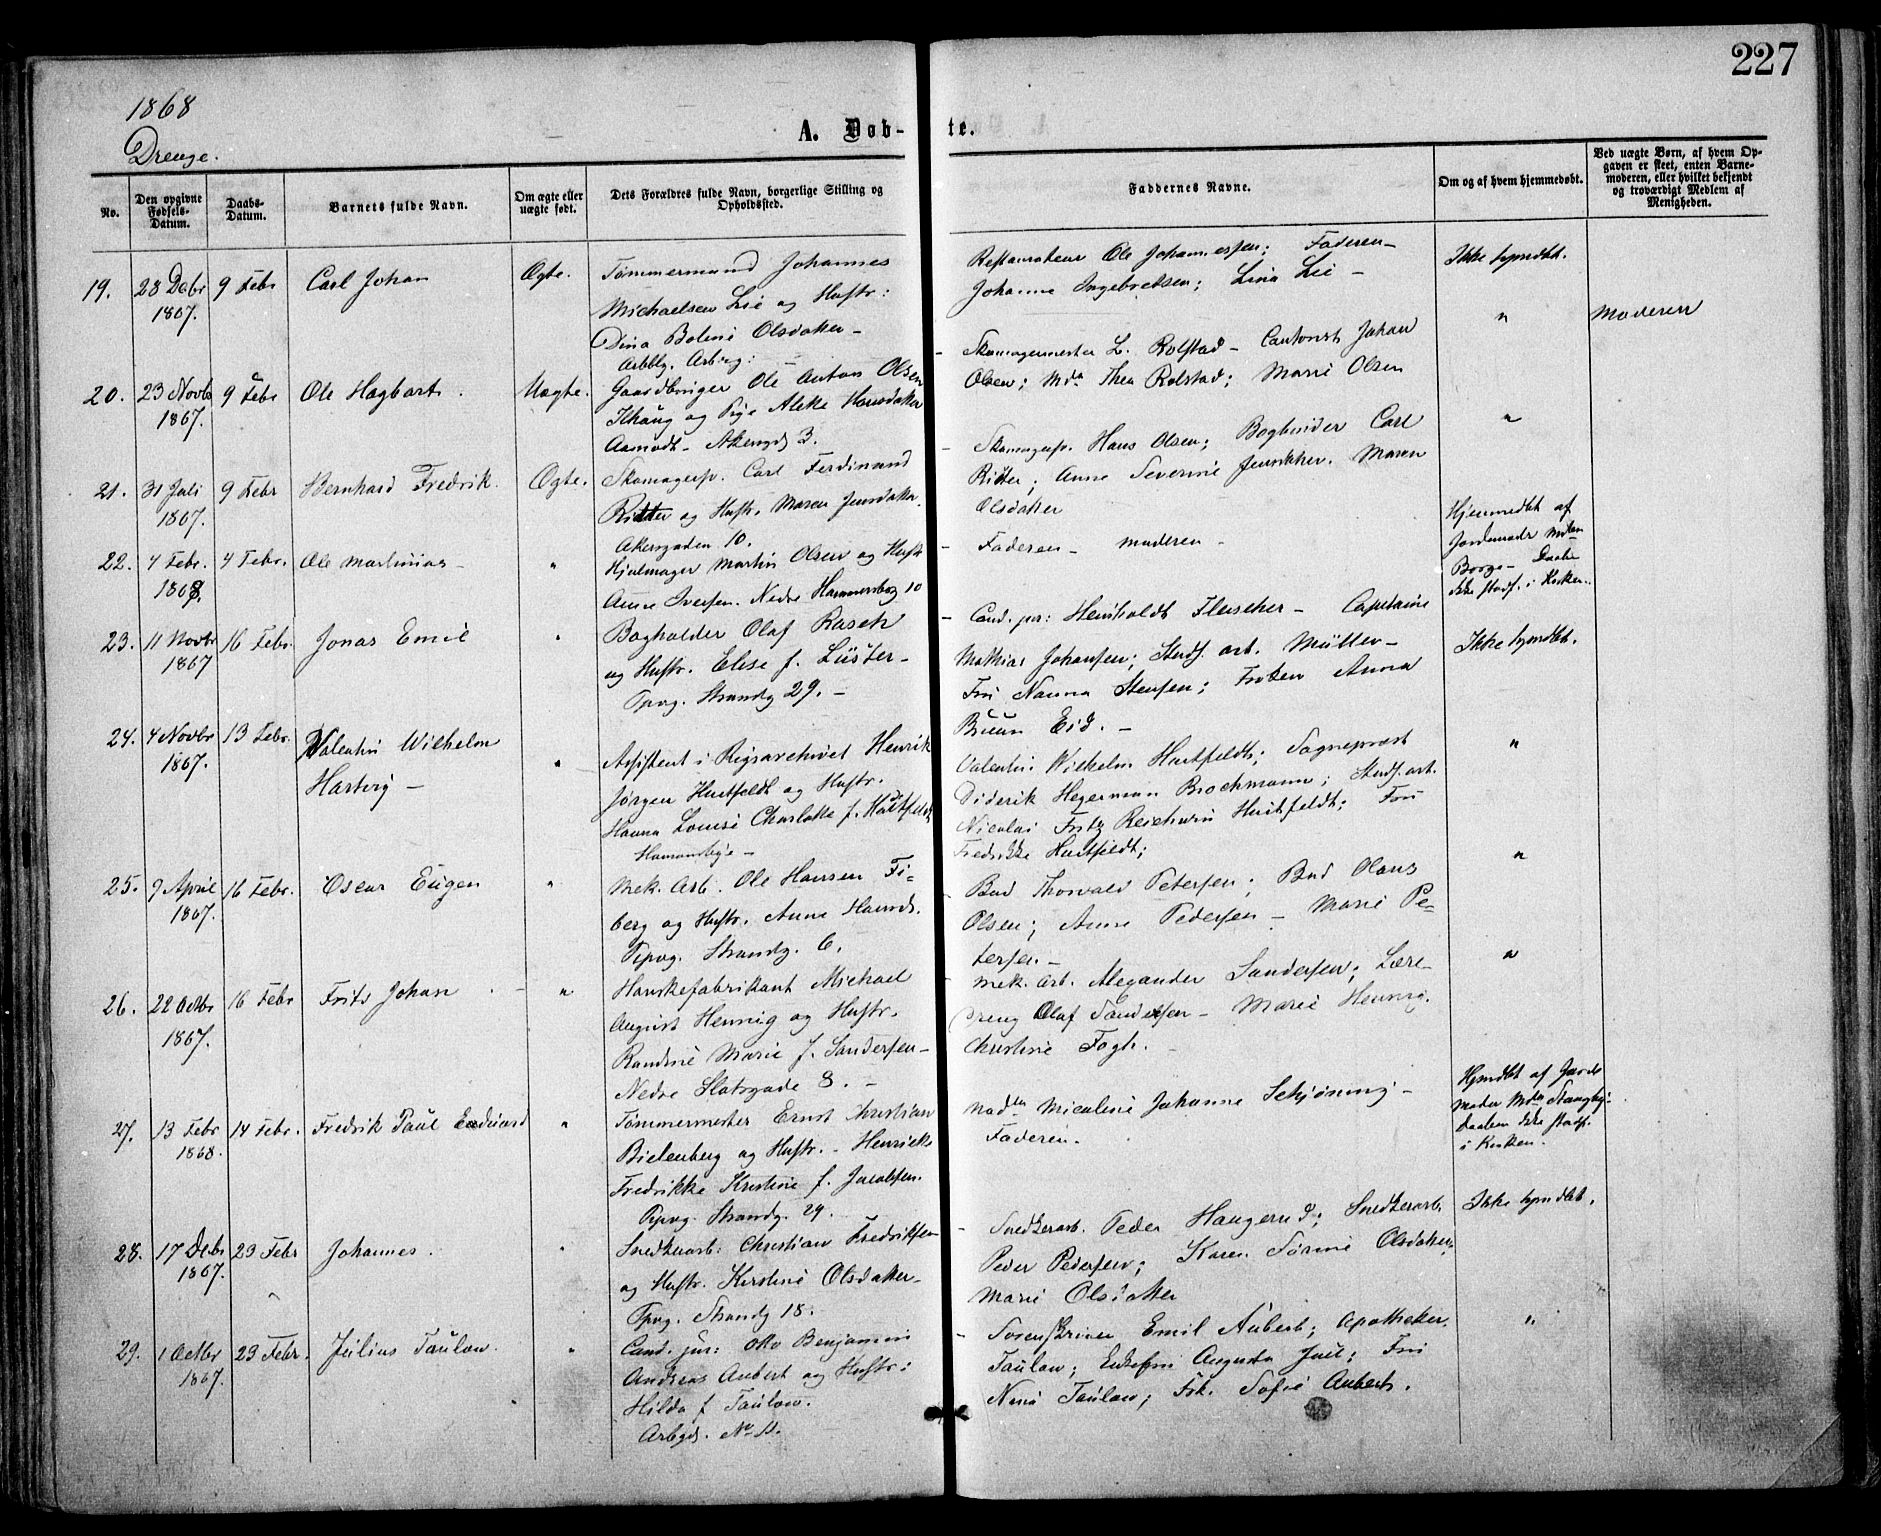 227
1868
Drenge.
A. Døb-
te.
No.
Den opgivne Fødsels-Datum.
Daabs-Datum.
Barnets fulde Navn.
Om ægte eller uægte født.
Dets Forældres fulde Navn, borgerlige Stilling og Opholdssted.
Faddernes Navne.
Om og af hvem hjemmedøbt.
Ved uægte Børn, af hvem Opgaven er skeet, enten Barnemoderen, eller hvilket bekjendt og troværdigt Medlem af Menigheden.
19. 28 Decbr 1867. 9 Febr Carl Johan Ægte.
Tømmermand Johannes
Michaelsen Lie og Hustr:
Dina Boline Olsdatter –
Restaurateur Ole Johannessen; Faderen –
Johanne Ingebretsen; Lina Lie –
Ikke hjmdbt.
20. 23 Novbr 1867. 9 Febr Ole Hagbart. Uægte.
Gaardbruger Ole Anton Olsen
Ilhaug og Pige Aleke Hansdatter
Aamodt – Akersgd 3.
Skomagermester L. Rolstad – Cantonist Johan
Olsen; Md. Thea Rolstad; Marie Olsen
" Moderen
21. 31 Juli 1867. 9 Febr Bernhard Fredrik. Ægte.
Skomagersv. Carl Ferdinand
Ritter og Hustr. Maren Jensdatter.
Akersgaden 10.
Skomagersv. Hans Olsen; Bogbinder Carl
Ritter; Anne Severine Maren
Olsdatter
"
22. 4 Febr. 1868. 4 Febr. Ole Martinius – "
Hjulmager Martin Olsen og Hustr
Anne Iversen. Nedre Hammersborg 10
Faderen – Moderen –
Hjemmedbt af
Jordemodr
Borge – Daabe
ikke stadf. i Kirken.
23. 11 Novbr 1867 16 Febr. Jonas Emil "
Bogholder Olaf Rasch
og Hustr. Elise f. Lüster –
Tpvg. Strandg 29. –
Cand. jur: Fleischer – Capitaine
Mathias Johansen; Stud. art. Müller –
Fru Nanna Stensen; Frøken Anna
Bruun Eid. –
Ikke hjmdbt.
24. 4 Novbr 1867. 13 Febr. Valentin Wilhelm
Hartvig – "
Assistent i Rigsarchivet Henrik
Jørgen Huitfeldt og Hustr.
Hanna Louise Charlotte f. Huitfeldt
Valentin Wilhelm Huitfeldt; Sognepræst
Diderik Hegerman Brochmann; Stud. art.
Nicolai Fritz Reichwin Huitfeldt; Fru
Fredrikke Huitfeldt;
"
25. 9 April 1867. 16 Febr. Oscar Eugen "
Mek. Arb. Ole Hansen Fi-
berg og Hustr. Anne Hansd.
Tpvg. Strandg. 6.
Bud Thorvald Petersen; Bud Olaus
Olsen; Anne Pedersen – Marie Pe-
tersen –
"
26. 22 Octbr 1867. 16 Febr Frits Johan. – "
Hanskefabrikant Michael
August Hennig og Hustr.
Randine Marie f. Sandersen –
Nedre Slotsgade 8. –
Mek. Arb. Alexander Sandersen; Lære-
dreng Olaf Sandersen – Marie Hennig.
Christine Fogh. –
"
27. 13 Febr 1868. 14 Febr. Fredrik Paul Eeduard "
Tømmermester Ernst Christian
Bielenberg og Hustr. – Henriette
Fredrikke Kristine f. Jacobsen.
Tpvg. Strandg. 29.
Micaline Johanne Schjøning –
Faderen.
Hjmdbt af Jorde
moder
Daaben ikke stadf.
i Kirken.
28. 17 Decbr 1867. 23 Febr Johannes. "
Snedkerarb: Christian Fredriksen
og Hustr. Kirstine Olsdatter –
Tpvg. Strandg 18.
Snedkerarb. Peder Haugerud; Snedkerarb.
Peder Pedersen; Karen Sørine Olsdatter;
Marie Olsdatter
Ikke hjmdbt.
29. 1 Octbr 1867. 23 Febr. Julius Taulow. "
Cand. jur: Otto Benjamin
Andreas Aubert og Hustr:
Hilda f Taulow.
Sorenskriver Emil Aubert; Apotheker
Taulow; Enkefru Augusta Juul; Fru
Nina Taulow; Frk. Sofie Aubert.
"